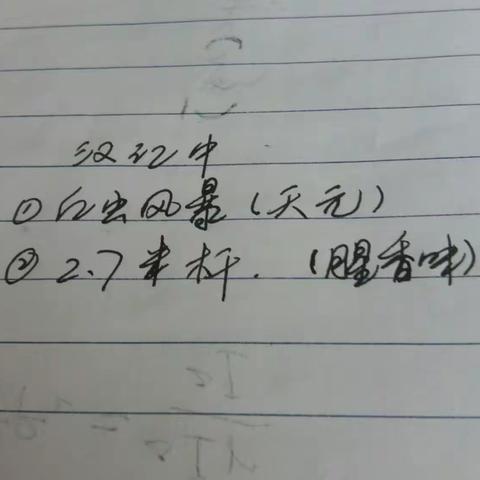 汉江中
①红虫风暴(天元)
②2.7米杆.(腥香味)